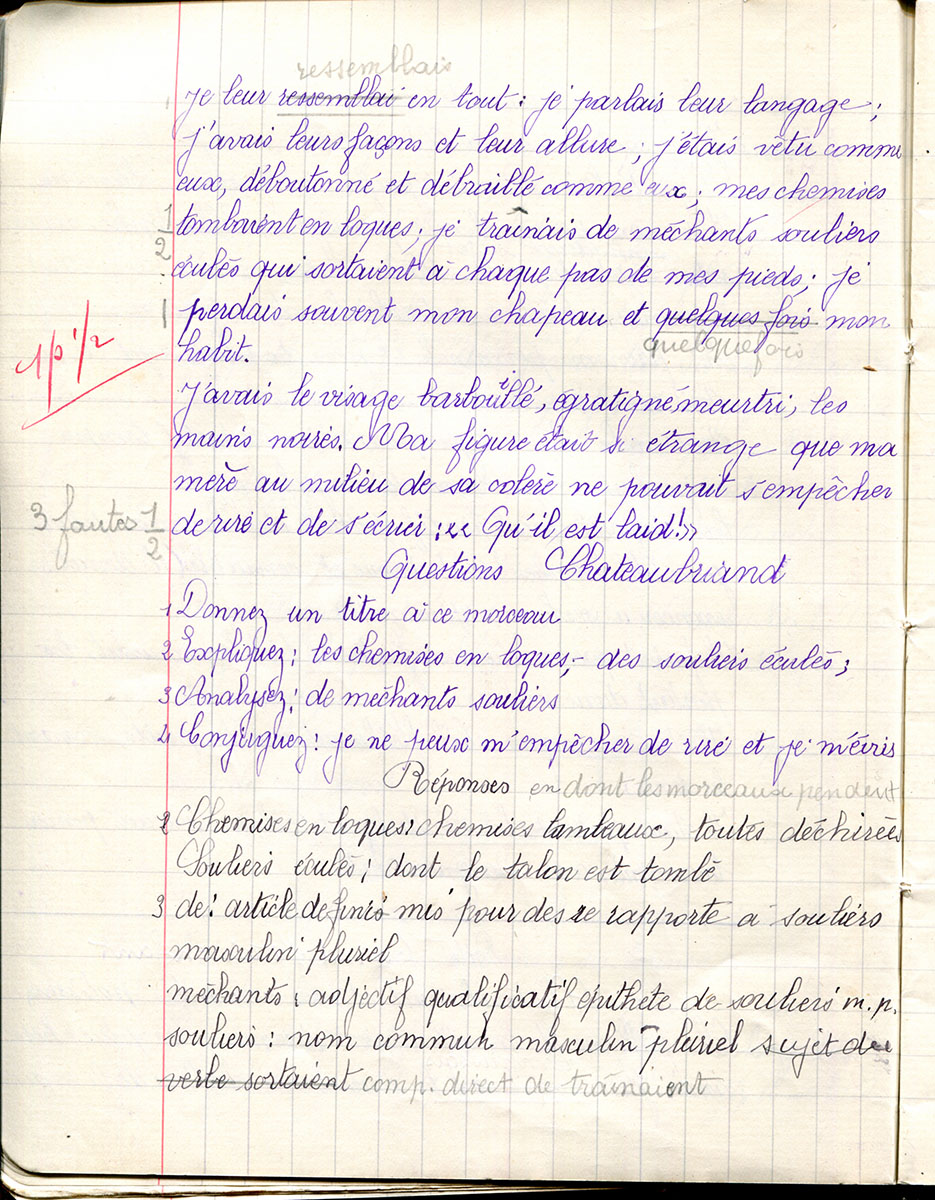 ressemblais
Je leur ressemblai en tout : je parlais leur langage ;
j'avais leurs façons et leur allure ; j'étais vêtu comme
eux, déboutonné et débraillé comme eux ; mes chemises
1/2 tombaient en loques ; je traînais de méchants souliers
éculés qui sortaient à chaque pas de mes pieds ; je
1 perdais souvent mon chapeau et quelques fois mon
quelquefois
1p 1/2
habit.
J'avais le visage barbouillé, égratigné meurtri, les
mains noires. Ma figure était si étrange que ma
mère au milieu de sa colère ne pouvait s'empêcher
3 fautes 1/2 de rire et de s'écrier : << Qu'il est laid ! >>
Questions Chateaubriand
1 Donnez un titre à ce morceau
2 Expliquez : les chemises en loques, - des souliers éculés ;
3 Analysez : de méchants souliers
4 Conjuguez : je ne peux m'empêcher de rire et je m'écris
Réponses en dont les morceaux pendent
2 Chemises en loques : chemises lambeaux, toutes déchirées
Souliers éculés : dont le talon est tombé
3 de : article définis mis pour des se rapporte à souliers
masculin pluriel
méchants : adjectif qualificatif épithète de souliers m. p.
souliers : nom commun masculin pluriel sujet du
verbe sortaient comp. direct de traînaient